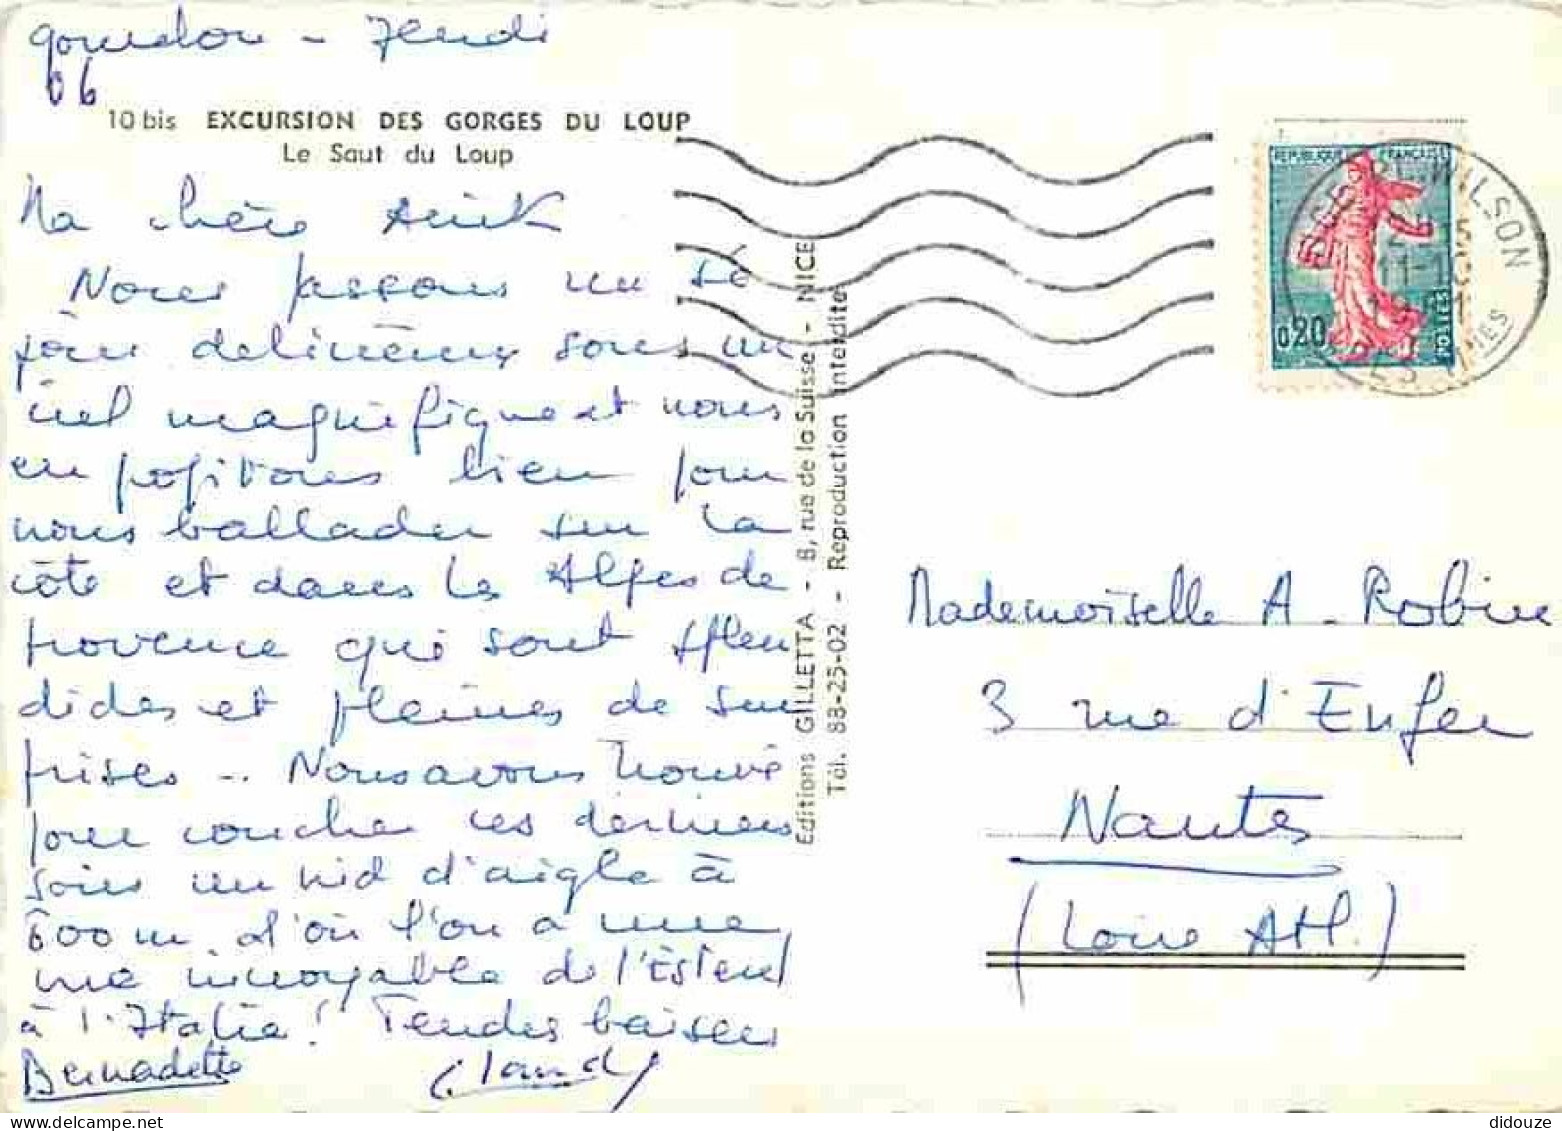 Gourdon - Jeudi
06
10 bis EXCURSION DES GORGES DU LOUP
Le Saut du Loup
Ma chère Annick
Nous passons un sé
jour
sous un
ciel magnifique et nous
en profitons bien pour
nous ballader sur la
côte et dans les Alpes de
provence qui sont splen
dides et pleines de sur
prises .. Nous avons trouvé
pour coucher ces derniers
soirs un nid d'aigle à
600 m. d'où l'on a une
vue incroyable de l'Esterel
à l'Italie! Tendes baisers
Bernadette Claude
Editions GILLETTA - 8, rue de la Suisse - NICE
Tél. 88-25-02 - Reproduction interdite
REPUBLIQUE FRANÇAISE
0,20
POSTES
WILSON
Mademoiselle A. Robine
3 rue d'Enfer
Nantes
(Loire Atl.)
didouze